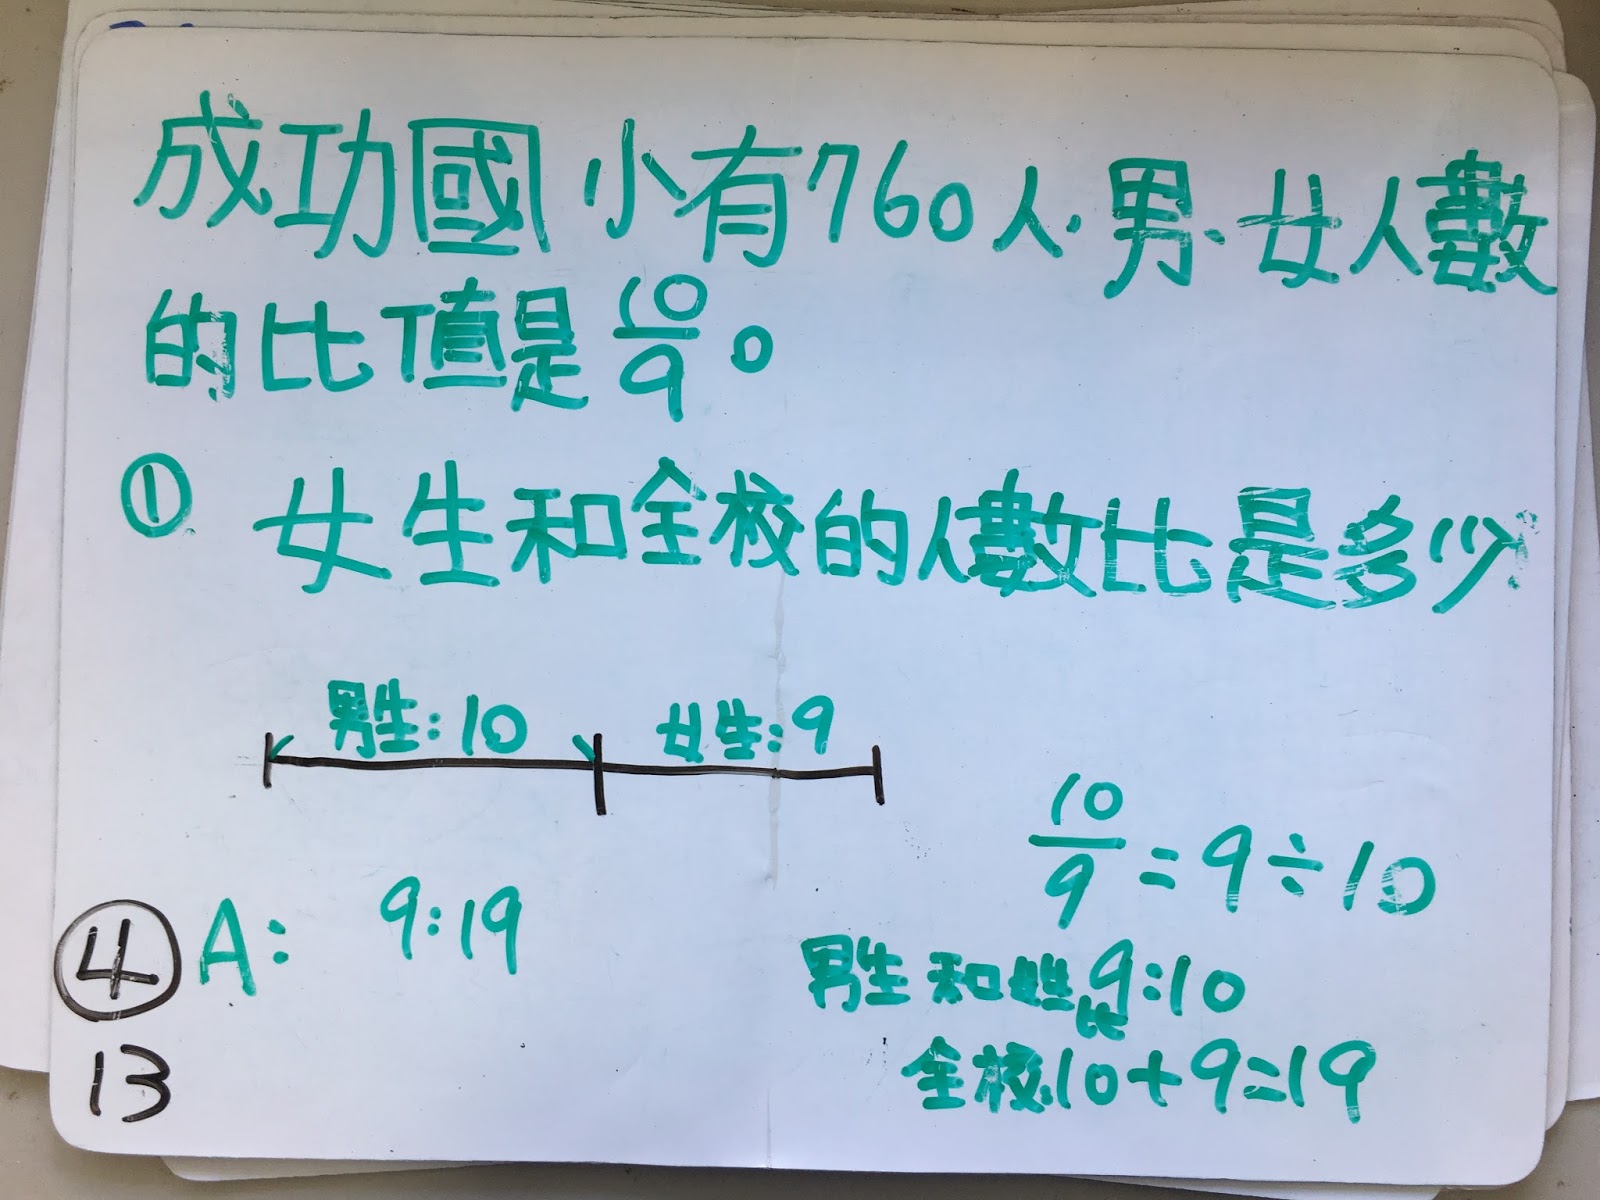 成功國小有760人.男、女人數
的比值是10/9。
① 女生和全校的人數比是多少
男生:10 女生:9
10/9=9÷10
④ A: 9:19
男生和女生比9:10
全校10+9=19
13